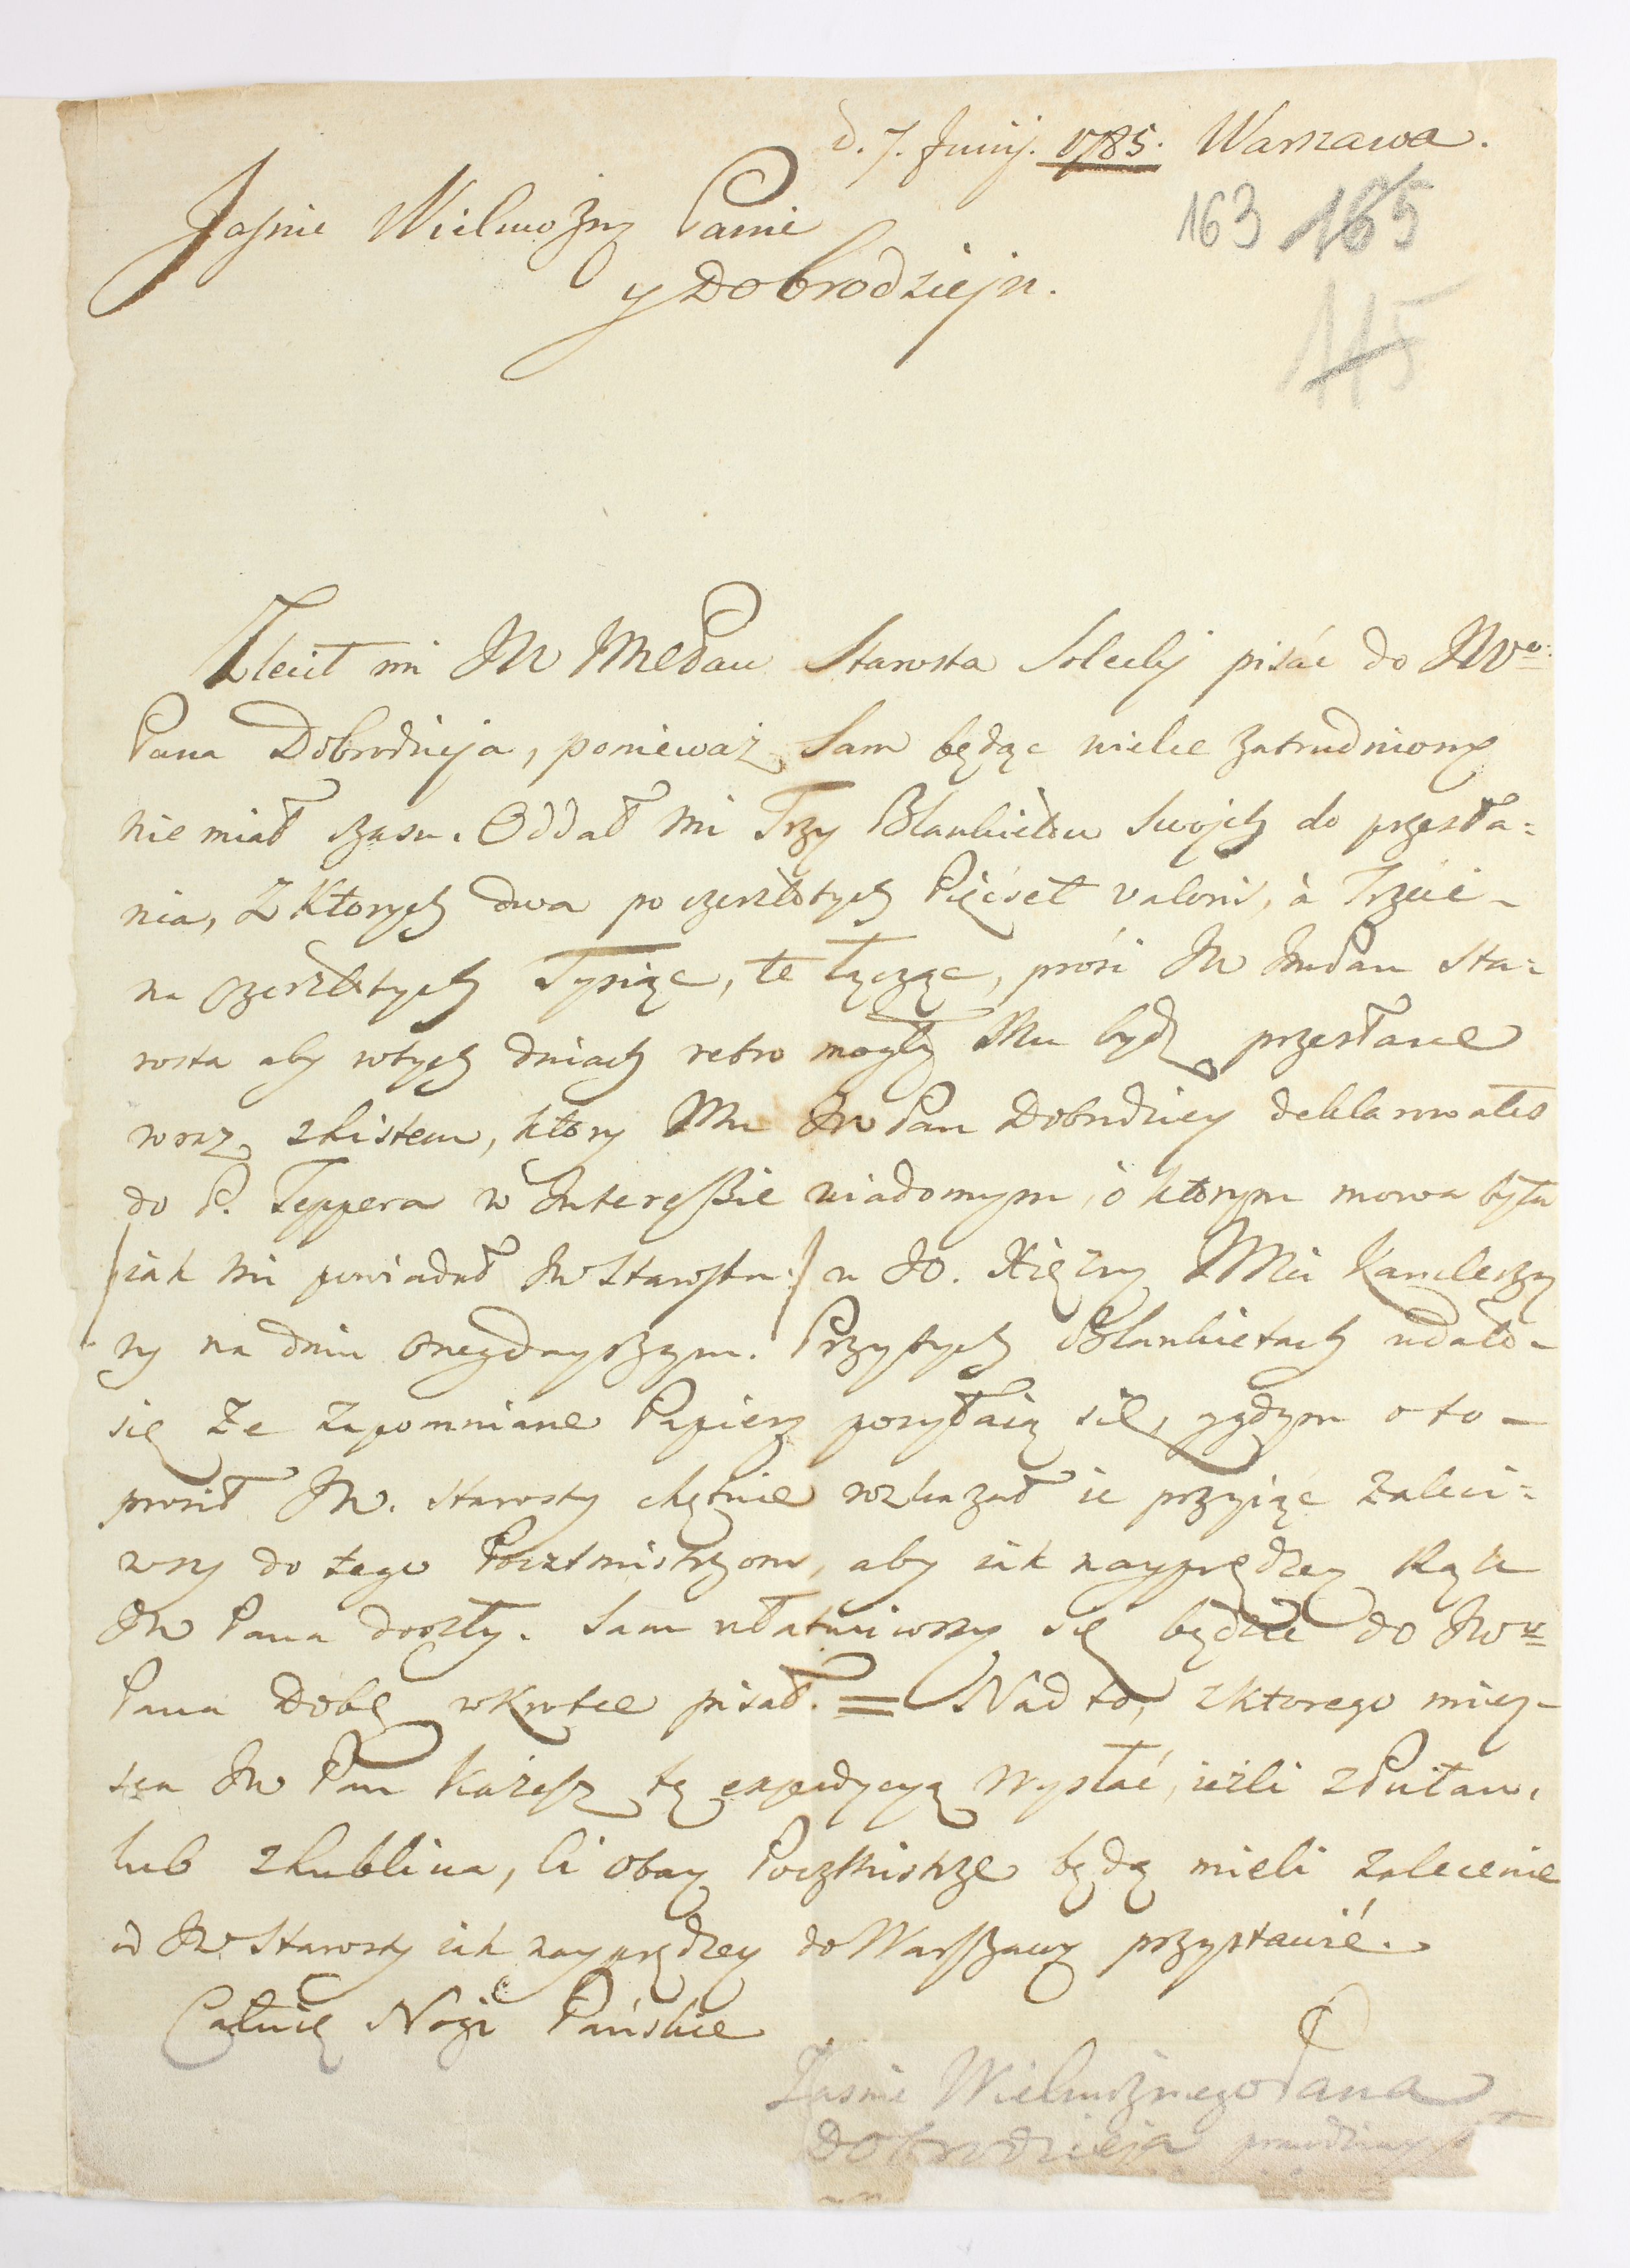 d. 7. Junij. 1785. Warszawa.
163 165
145
Jaśnie Wielmożny Panie
y Dobrodzieju.
Zlecił mi JW JMCPan Starosta Solecky pisać do JWo.
Pana Dobrodzieja, ponieważ Sam będąc wielce zatrudniony
nie miał czasu. Oddał mi Trzy Blankietów Swojch do przesła=
nia, Z Ktorych dwa po czerzłotych Pięćset valoris, à Trzeci -
na czerzłotych Tysiąc, te łącząc, prosi JW JmPan Sta=
rosta aby wtych dniach retro mogły Mu bydź przesłane
wraz zListem, ktory Mu JW Pan Dobrodziey deklarowałeś
do P. Teppera w Interessie wiadomym, o ktorym mowa była
/iak mi powiadał JW Starosta:/ u JO. Xiężny JMci Kanclerzy
ny na dniu onegdayszym. Przytych Blankietach udało-
się Ze Zapomniane Papiery posyłaią się, gdym o to -
prosił JW. Starosty chętnie rozkazał ie przyiąć zaleci=
wszy do tego Pocztmistrzom, aby iak nayprędzey Rąk
JW Pana doszły. Sam ułatwiwszy się będzie do JWo
Pana Dobę wKrotce pisał. = Nad to, zktorego miey-
sca JW Pan Każesz tę expedycyą wysłać, ieżli zPuław,
lub zLublina, Ci obay Poczmistrze będą mieli zalecenie
od JW Starosty iak nayprędzey do Warszawy przystawić.
Całuię Nogi Pańskie
Jaśnie Wielmożnego Pana
Dobrodzieja prawdziwy